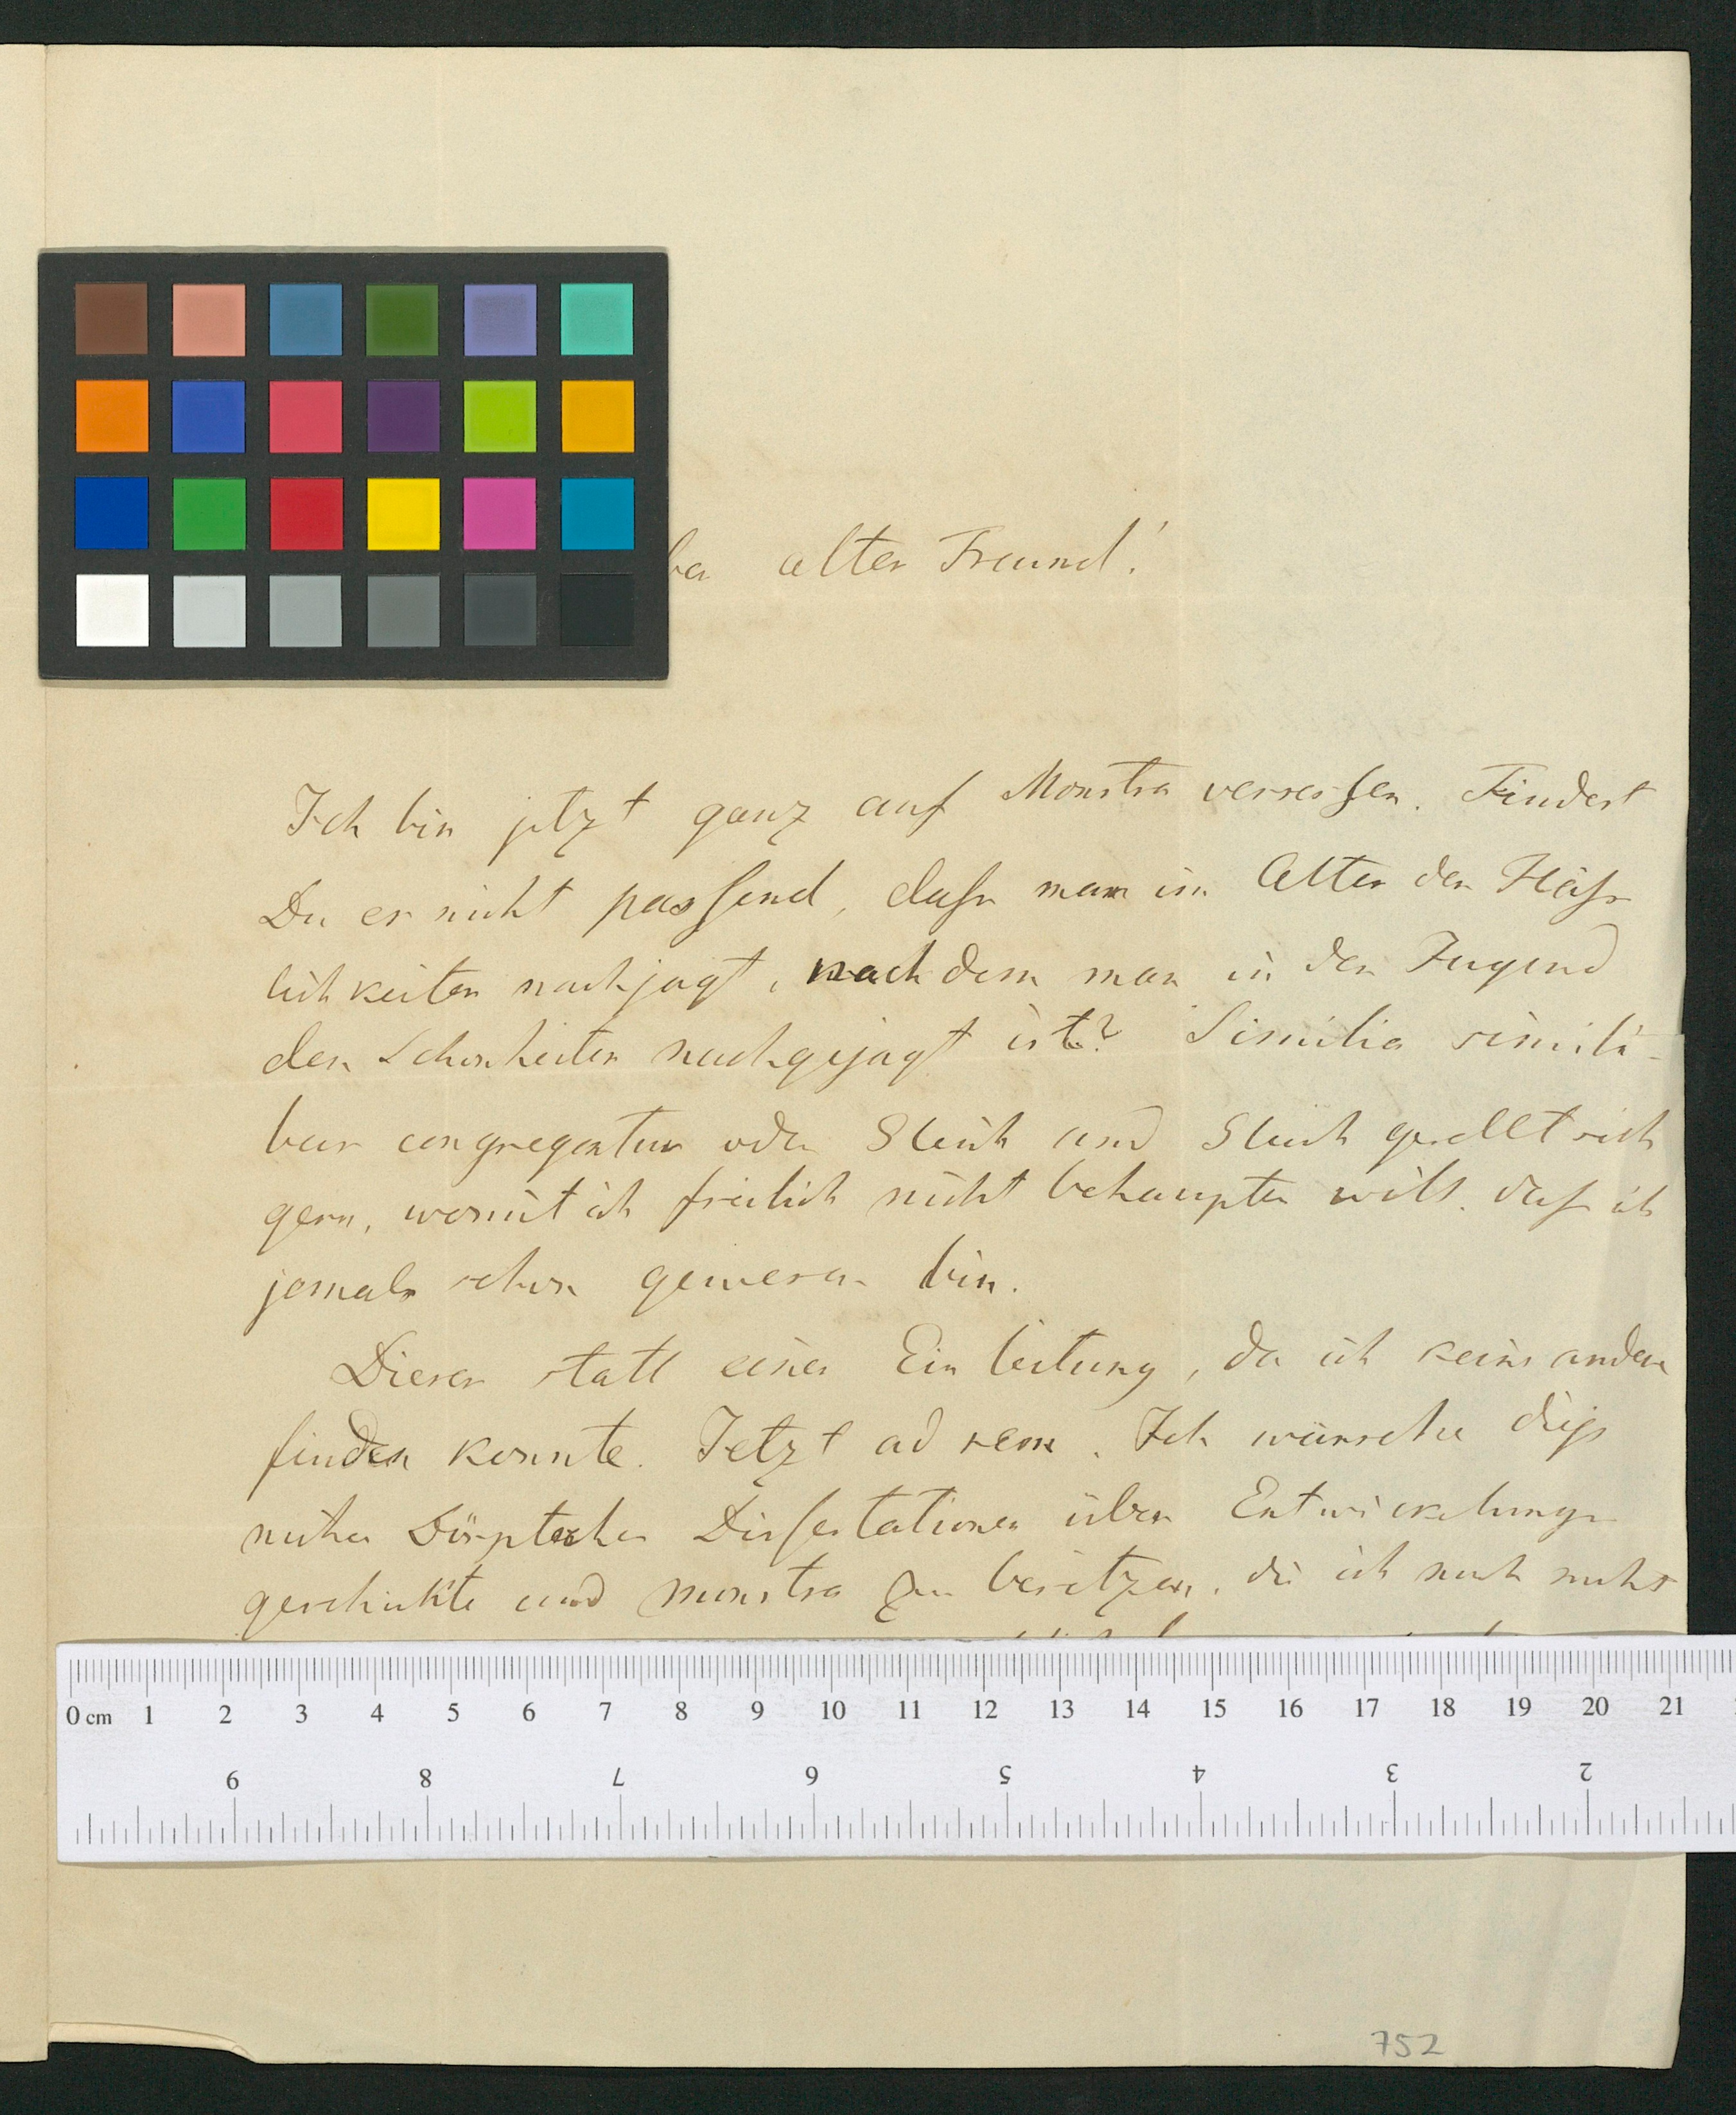 ber alter Freund!
Ich bin jetzt ganz auf Monstra versessen. Findest
Du es nicht passend, dass man im Alter den Häss
lichkeiten nachjagt, nachdem man in der Jugend
den Schönheiten nachgejagt ist? Similia simili-
bus congregantur oder Gleich und Gleich gesellt sich
gern, womit ich freilich nicht behaupten will, dass ich
jemals schön gewesen bin.
Dieses statt einer Einleitung, da ich keine andere
finden konnte. Jetzt ad rem. Ich wünsche
Dörptsche Dissertationen über Entwickelungs
geschichte und monstra zu besitzen, die ich noch nicht
0 cm 1 2 3 4 5 6 7 8 9 10 11 12 13 14 15 16 17 18 19 20 21
9 8 7 6 5 4 3 2
752